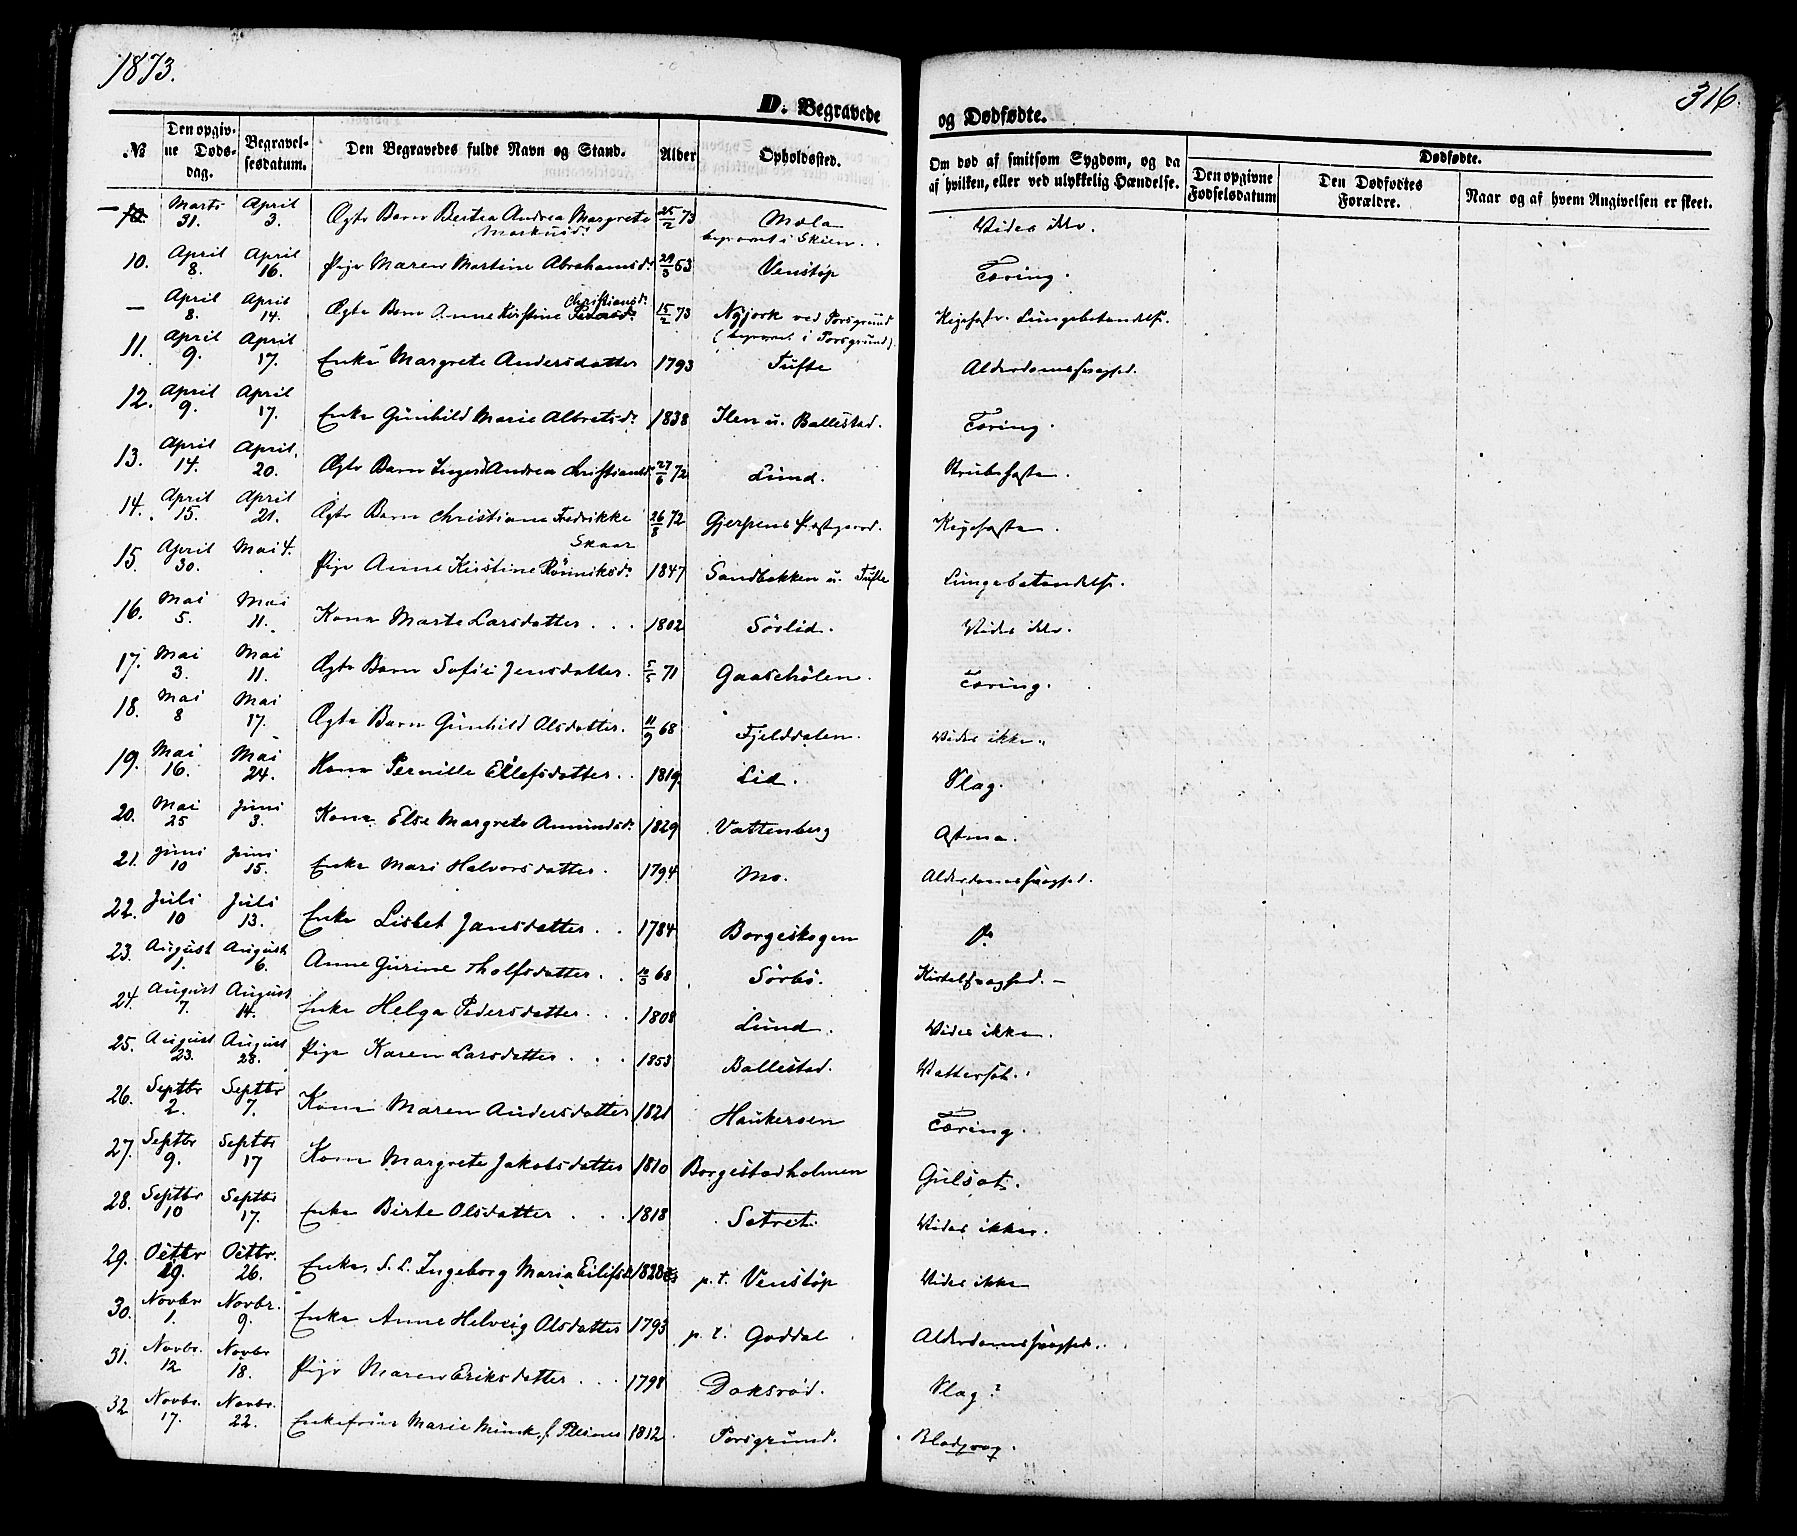 1873.
316.
D. Begravede og Dødfødte.
No Den opgivne Dødsdag. Begravelsesdatum. Den Begravedes fulde Navn og Stand. Alder Opholdssted. Om død af smitsom Sygdom, og da af hvilken, eller ved ulykkelig Hændelse. Dødfødte.
Den opgivne Fødselsdatum Den Dødfødtes Forældre. Naar og af hvem Angivelsen er skeet.
— Marts 31. April 3. Ægte Barn Bertea Andrea Margrete Markusd. 25/2 73 Mæla begravet i Skien. Vides ikke.
10. April 8. April 16. Pige Maren Martine Abrahamsd. 29/3 53 Venstøp Tæring.
— April 8. April 14. Ægte Barn Anne Kirstine Christiansd. 15/2 73 Nyjork ved Porsgrund (begravet i Porsgrund). Kighoste. Lungebetændelse.
11. April 9. April 17. Enke Margrete Andersdatter 1793 Tufte Alderdomssvaghed.
12. April 9. April 17. Enke Gunhild Marie Albretsd. 1838 Ilen u. Ballestad. Tæring.
13. April 14. April 20. Ægte Barn Inger Andrea Christiansd. 27/6 72 Lund. Strubehoste.
14. April 15. April 21. Ægte Barn Christiane Fredrikke Skaar 26/8 72 Gjerpens Prestgaard. Kighoste.
15. April 30. Mai 4. Pige Anne Kirstine Rønniksd. 1847 Sandbakken u. Tufte Lungebetændelse.
16. Mai 5. Mai 11. Kone Marte Larsdatter . . . 1802 Sørlid. Vides ikke.
17. Mai 3. Mai 11. Ægte Barn Sofie Jensdatter. 5/5 71 Gaasehølen. Tæring.
18. Mai 8 Mai 17. Ægte Barn Gunhild Olsdatter. 11/9 68 Fjelddalen. Vides ikke.
19. Mai 16. Mai 24. Kone Pernille Ellefsdatter . . 1819. Lid. Slag.
20. Mai 25 Juni 3. Kone Else Margrete Amundsd. 1829 Vattenberg Astma.
21. Juni 10 Juni 15. Enke Mari Halvorsdatter. 1794 Mo. Alderdomssvaghed.
22. Juli 10 Juli 13. Enke Lisbet Jansdatter . . 1784 Borgeskogen do
23. August 1. August 6. Anne Gurine Tholfsdatter. /3 68 Sørbø. Kirtelsvaghed. —
24. August 7. August 14. Enke Helga Pedersdatter. . . 1808 Lund. Vides ikke.
25. August 23. August 28. Pige Karen Larsdatter . . . 1853 Ballestad. Vattersot.
26. Septbr 2. Septbr 7. Kone Maren Andersdatter 1821 Haukersen Tæring.
27. Septbr 9. Septbr 17 Kone Margrete Jakobsdatter 1810 Borgestadholmen Gulsot.
28. Septbr 10 Septbr 17. Enke Birte Olsdatter . . . 1818 Sætret. Vides ikke.
29. Octbr 19. Octbr. 26. Enke, S. L. Ingeborg Maria Eilifsd 1828 p.t. Venstøp Vides ikke
30. Novbr 1. Novbr. 9. Enke Anne Helvig Olsdatter 1793 p. t. Goddal Alderdomssvaghed.
31. Novbr. 12 Novbr 18. Pige Maren Eriksdatter . . . 1798 Doksrød. Slag?
32 Novbr. 17. Novbr. 22. Enkefrue Marie Munck, f. 1812. Porsgrund.